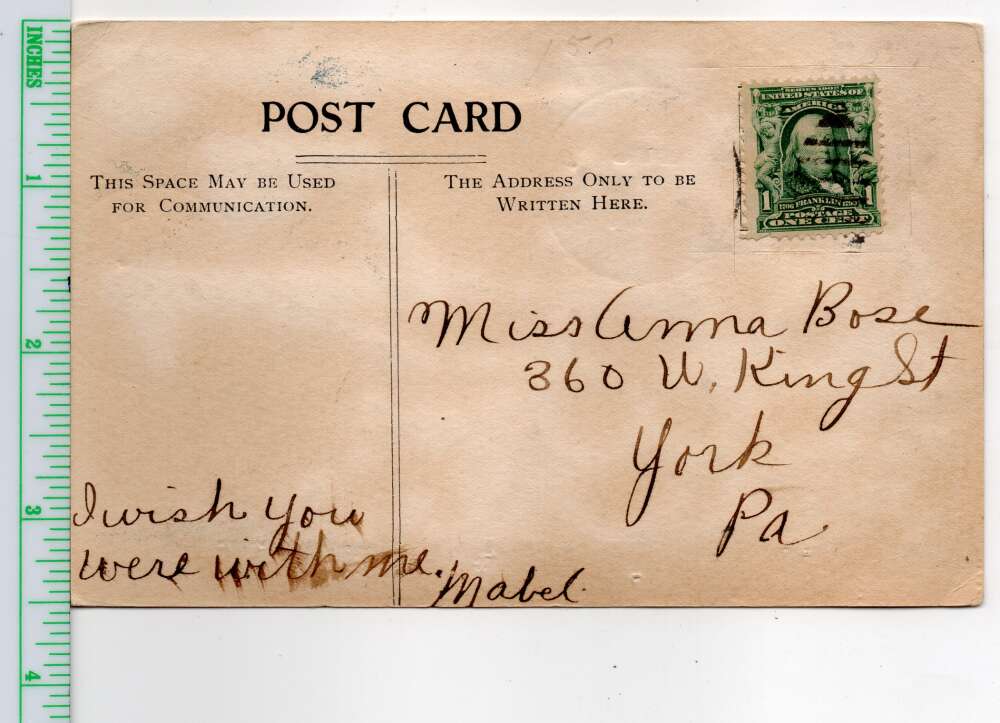 INCHES
1
2
3
4
150
POST CARD
THIS SPACE MAY BE USED
FOR COMMUNICATION.
THE ADDRESS ONLY TO BE
WRITTEN HERE.
SERIES 1902
UNITED STATES OF
AMERICA
1 1706 FRANKLIN 1790 1
POSTAGE
ONE CENT
Miss Anna Bose
360 W. King St
York
Pa
I wish you
were with me.
Mabel.